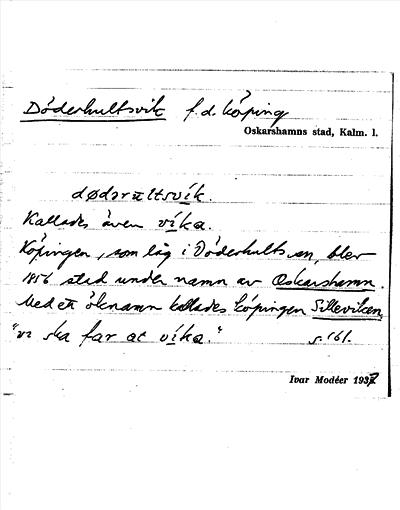 Döderhultsvik f.d. köping
Oskarshamns stad, Kalm. l.
dødərultsvík.
Kallades även víka.
Köpingen, som låg i Döderhults sn, blev
1856 stad under namn av Oskarshamn.
Med ett öknamn kallades köpingen Silleviken,
"vi ska far at víka." s. 161.
Ivar Modéer 1937